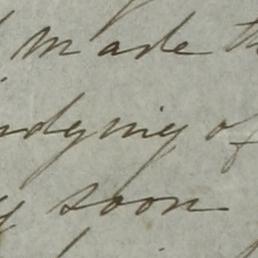 made th
ndying of
soon